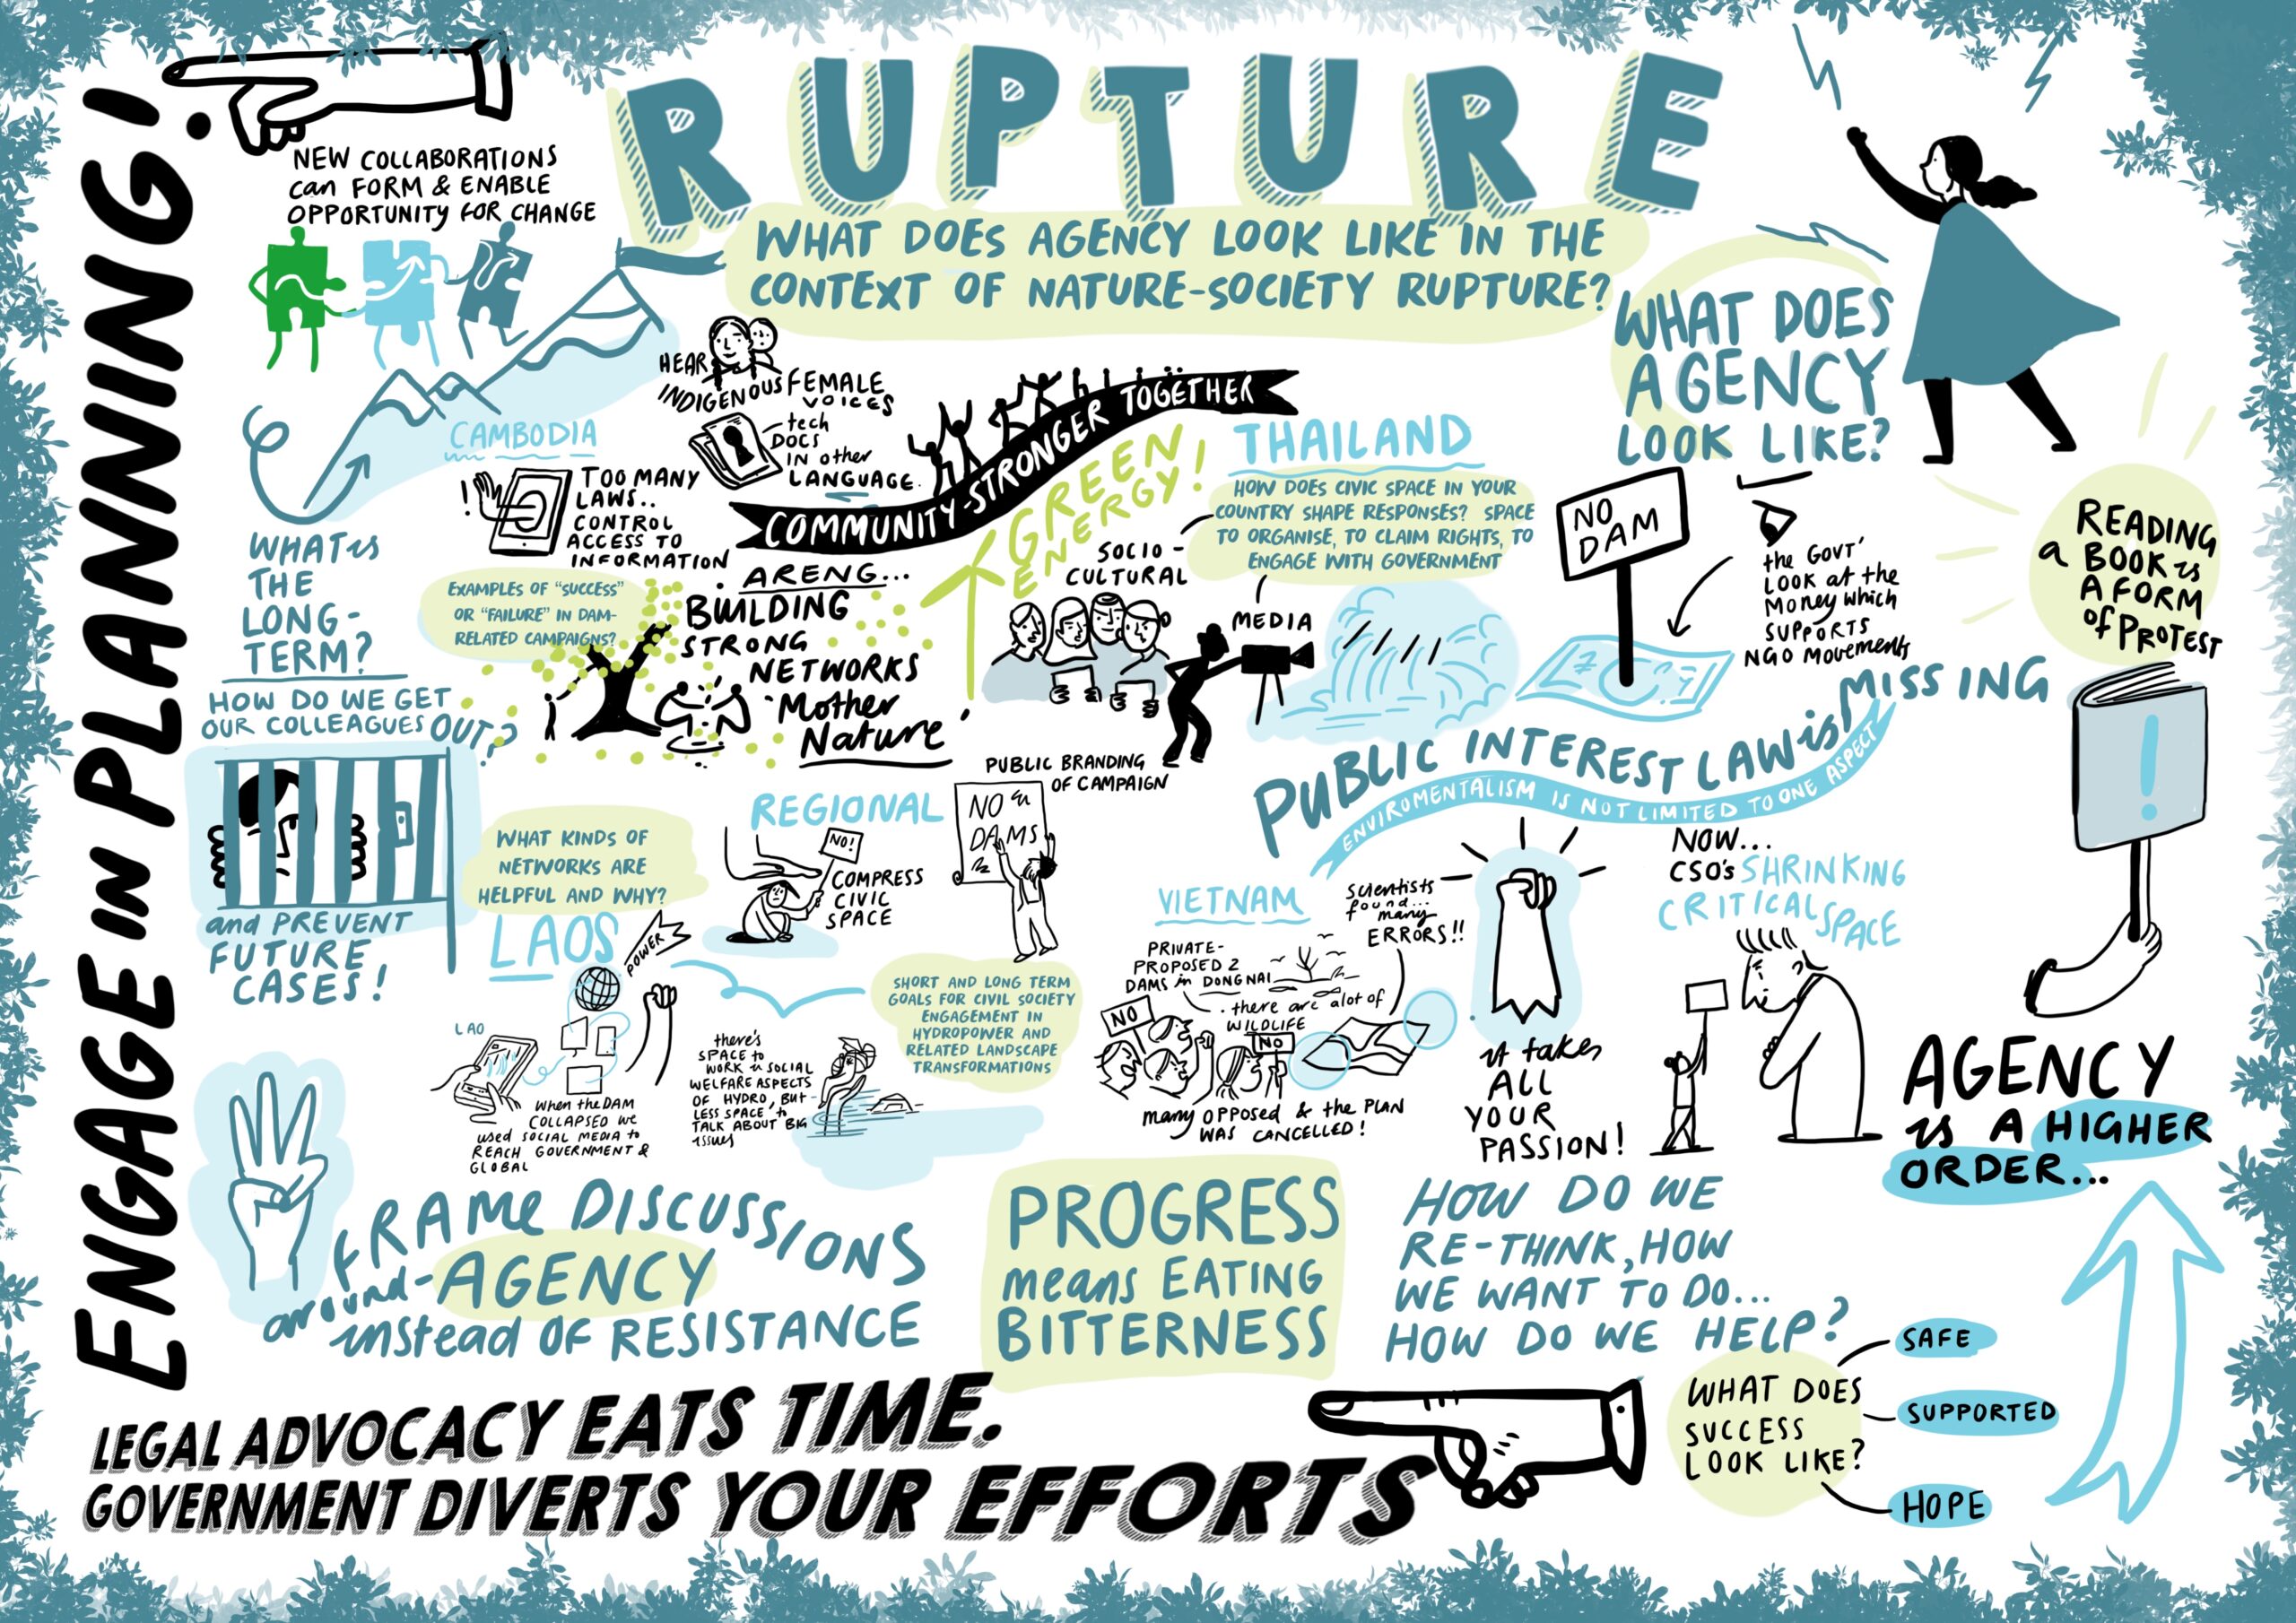 RUPTURE
WHAT DOES AGENCY LOOK LIKE IN THE
CONTEXT OF NATURE-SOCIETY RUPTURE?
ENGAGE IN PLANNING!
NEW COLLABORATIONS
can FORM & ENABLE
OPPORTUNITY FOR CHANGE
WHAT is
THE
LONG-
TERM?
HOW DO WE GET
OUR COLLEAGUES OUT?
and PREVENT
FUTURE
CASES!
CAMBODIA
TOO MANY
LAWS..
CONTROL
ACCESS TO
INFORMATION
HEAR
INDIGENOUS FEMALE
VOICES
tech
DOCS
IN other
LANGUAGE.
COMMUNITY-STRONGER TOGETHER
EXAMPLES OF "SUCCESS"
OR "FAILURE" IN DAM-
RELATED CAMPAIGNS?
ARENG...
BUILDING
STRONG
NETWORKS
'Mother
Nature'
GREEN
ENERGY!
THAILAND
HOW DOES CIVIC SPACE IN YOUR
COUNTRY SHAPE RESPONSES? SPACE
TO ORGANISE, TO CLAIM RIGHTS, TO
ENGAGE WITH GOVERNMENT
SOCIO-
CULTURAL
MEDIA
PUBLIC BRANDING
OF CAMPAIGN
WHAT DOES
AGENCY
LOOK LIKE?
NO
DAM
the GOVT'
LOOK at the
Money which
SUPPORTS
NGO Movements
READING
a BOOK is
A FORM
of PROTEST
!
PUBLIC INTEREST LAW is MISSING
ENVIROMENTALISM IS NOT LIMITED TO ONE ASPECT
WHAT KINDS OF
NETWORKS ARE
HELPFUL AND WHY?
LAOS
POWER
LAO
When the DAM
COLLAPSED we
used SOCIAL MEDIA to
REACH GOVERNMENT &
GLOBAL
REGIONAL
NO!
COMPRESS
CIVIC
SPACE
NO
DAMS
there's
SPACE to
WORK in SOCIAL
WELFARE ASPECTS
OF HYDRO, BUT
LESS SPACE to
TALK ABOUT BIG
issues
SHORT AND LONG TERM
GOALS FOR CIVIL SOCIETY
ENGAGEMENT IN
HYDROPOWER AND
RELATED LANDSCAPE
TRANSFORMATIONS
VIETNAM
PRIVATE-
PROPOSED 2
DAMS in DONGNAI
there are alot of
WILDLIFE
Scientists
found...
many
ERRORS!!
NO
NO
many OPPOSED & the PLAN
WAS CANCELLED!
it takes
ALL
YOUR
PASSION!
NOW...
CSO's SHRINKING
CRITICAL SPACE
AGENCY
is A HIGHER
ORDER...
FRAME DISCUSSIONS
around-AGENCY
instead OF RESISTANCE
PROGRESS
means EATING
BITTERNESS
HOW DO WE
RE-THINK, HOW
WE WANT TO DO...
HOW DO WE HELP?
WHAT DOES
SUCCESS
LOOK LIKE?
SAFE
SUPPORTED
HOPE
LEGAL ADVOCACY EATS TIME.
GOVERNMENT DIVERTS YOUR EFFORTS